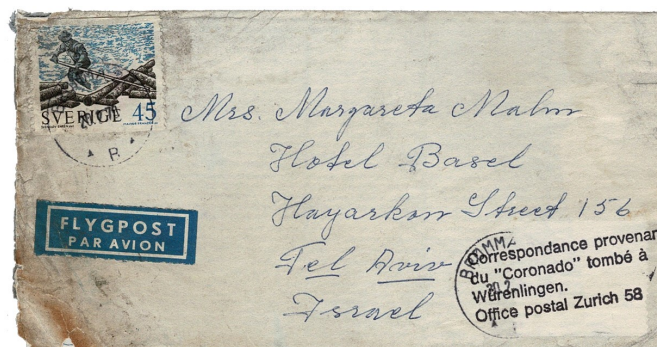 SVERIGE 45
Mrs. Margareta Malm
Hotel Basel
Hayarkon Street 156
Tel Aviv
Israel
FLYGPOST
PAR AVION
BROMMA
20.2
Correspondance provenan
du "Coronado" tombé à
Würenlingen.
Office postal Zurich 58